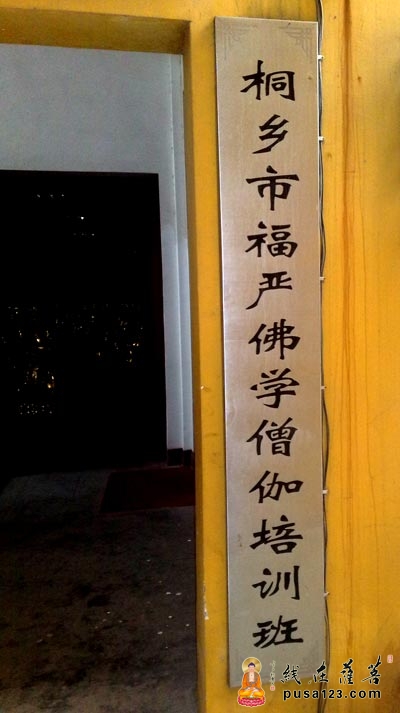 桐乡市福严佛学僧伽培训班
线在萨菩
pusa123.com